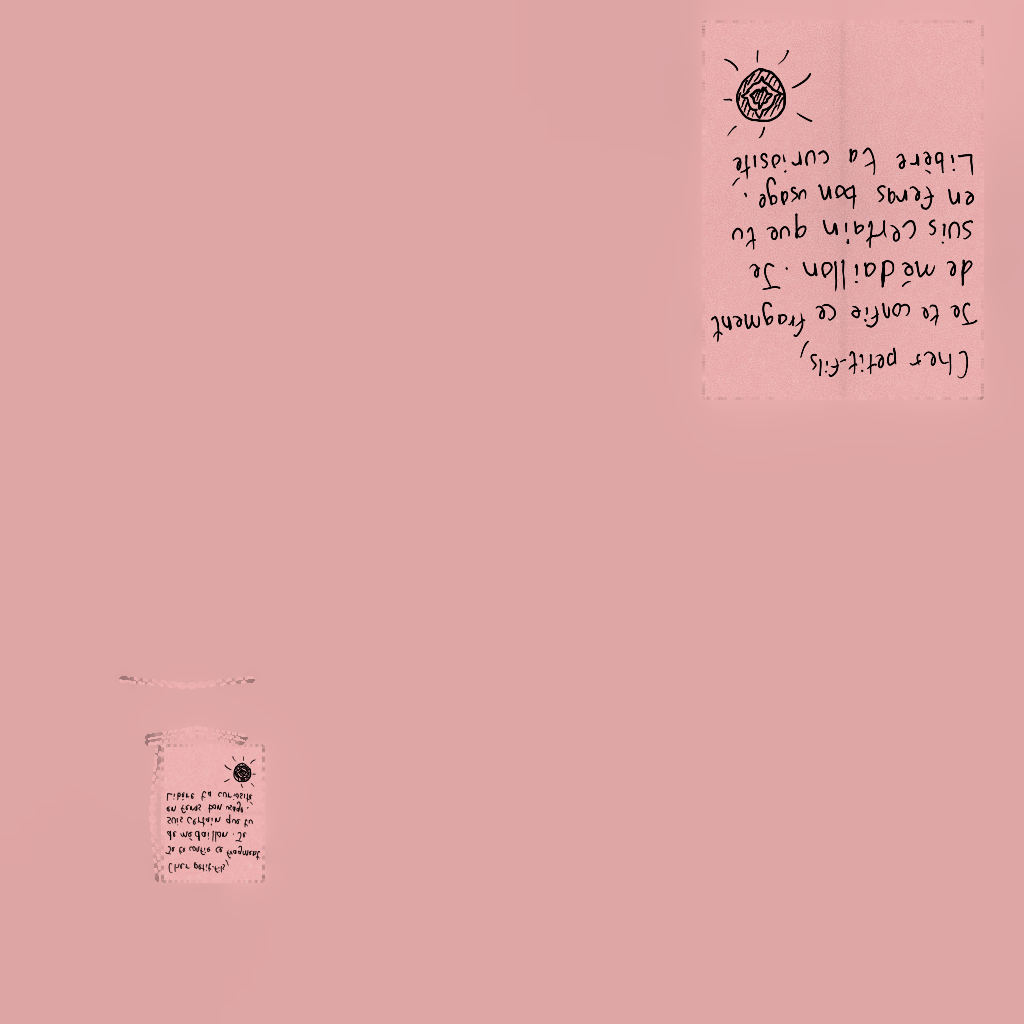 Cher petit-fils,
Je te confie ce fragment
de médaillon. Je
suis certain que tu
en feras bon usage.
Libère ta curiosité
Cher petit-fils,
Je te confie ce fragment
de médaillon. Je
suis certain que tu
en feras bon usage.
Libère ta curiosité